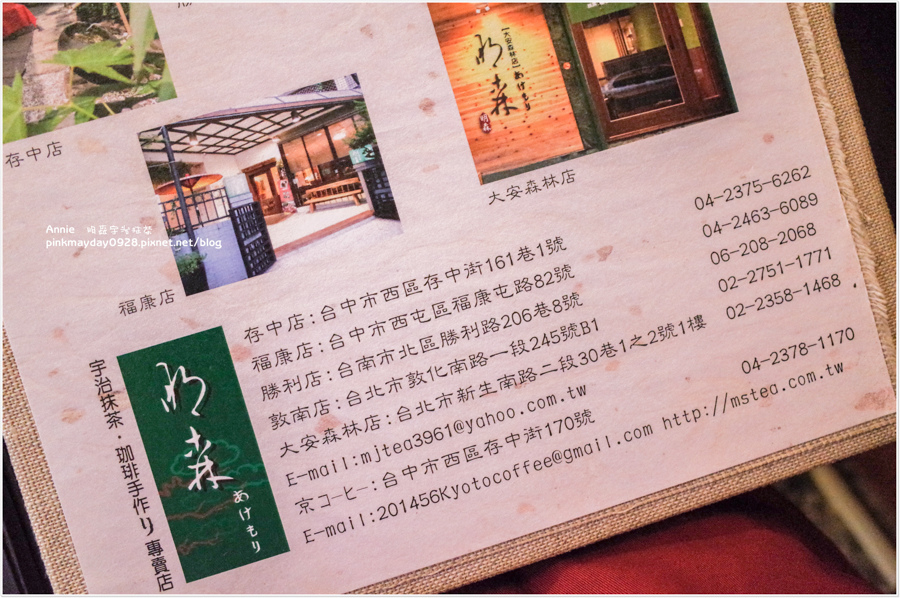 存中店
大安森林店
明森
あけもり
大安森林店
福康店
Annie
pinkmayday0928.pixnet.net/blog
存中店:台中市西區存中街161巷1號 04-2375-6262
福康店:台中市西屯區福康屯路82號 04-2463-6089
勝利店:台南市北區勝利路206巷8號 06-208-2068
敦南店:台北市敦化南路一段245號B1 02-2751-1771
大安森林店:台北市新生南路二段30巷1之2號1樓 02-2358-1468
E-mail:mjtea3961@yahoo.com.tw
京コーヒー:台中市西區存中街170號 04-2378-1170
E-mail:201456Kyotocoffee@gmail.com http://mstea.com.tw
宇治抹茶・珈琲手作り 專賣店
明森
あけもり